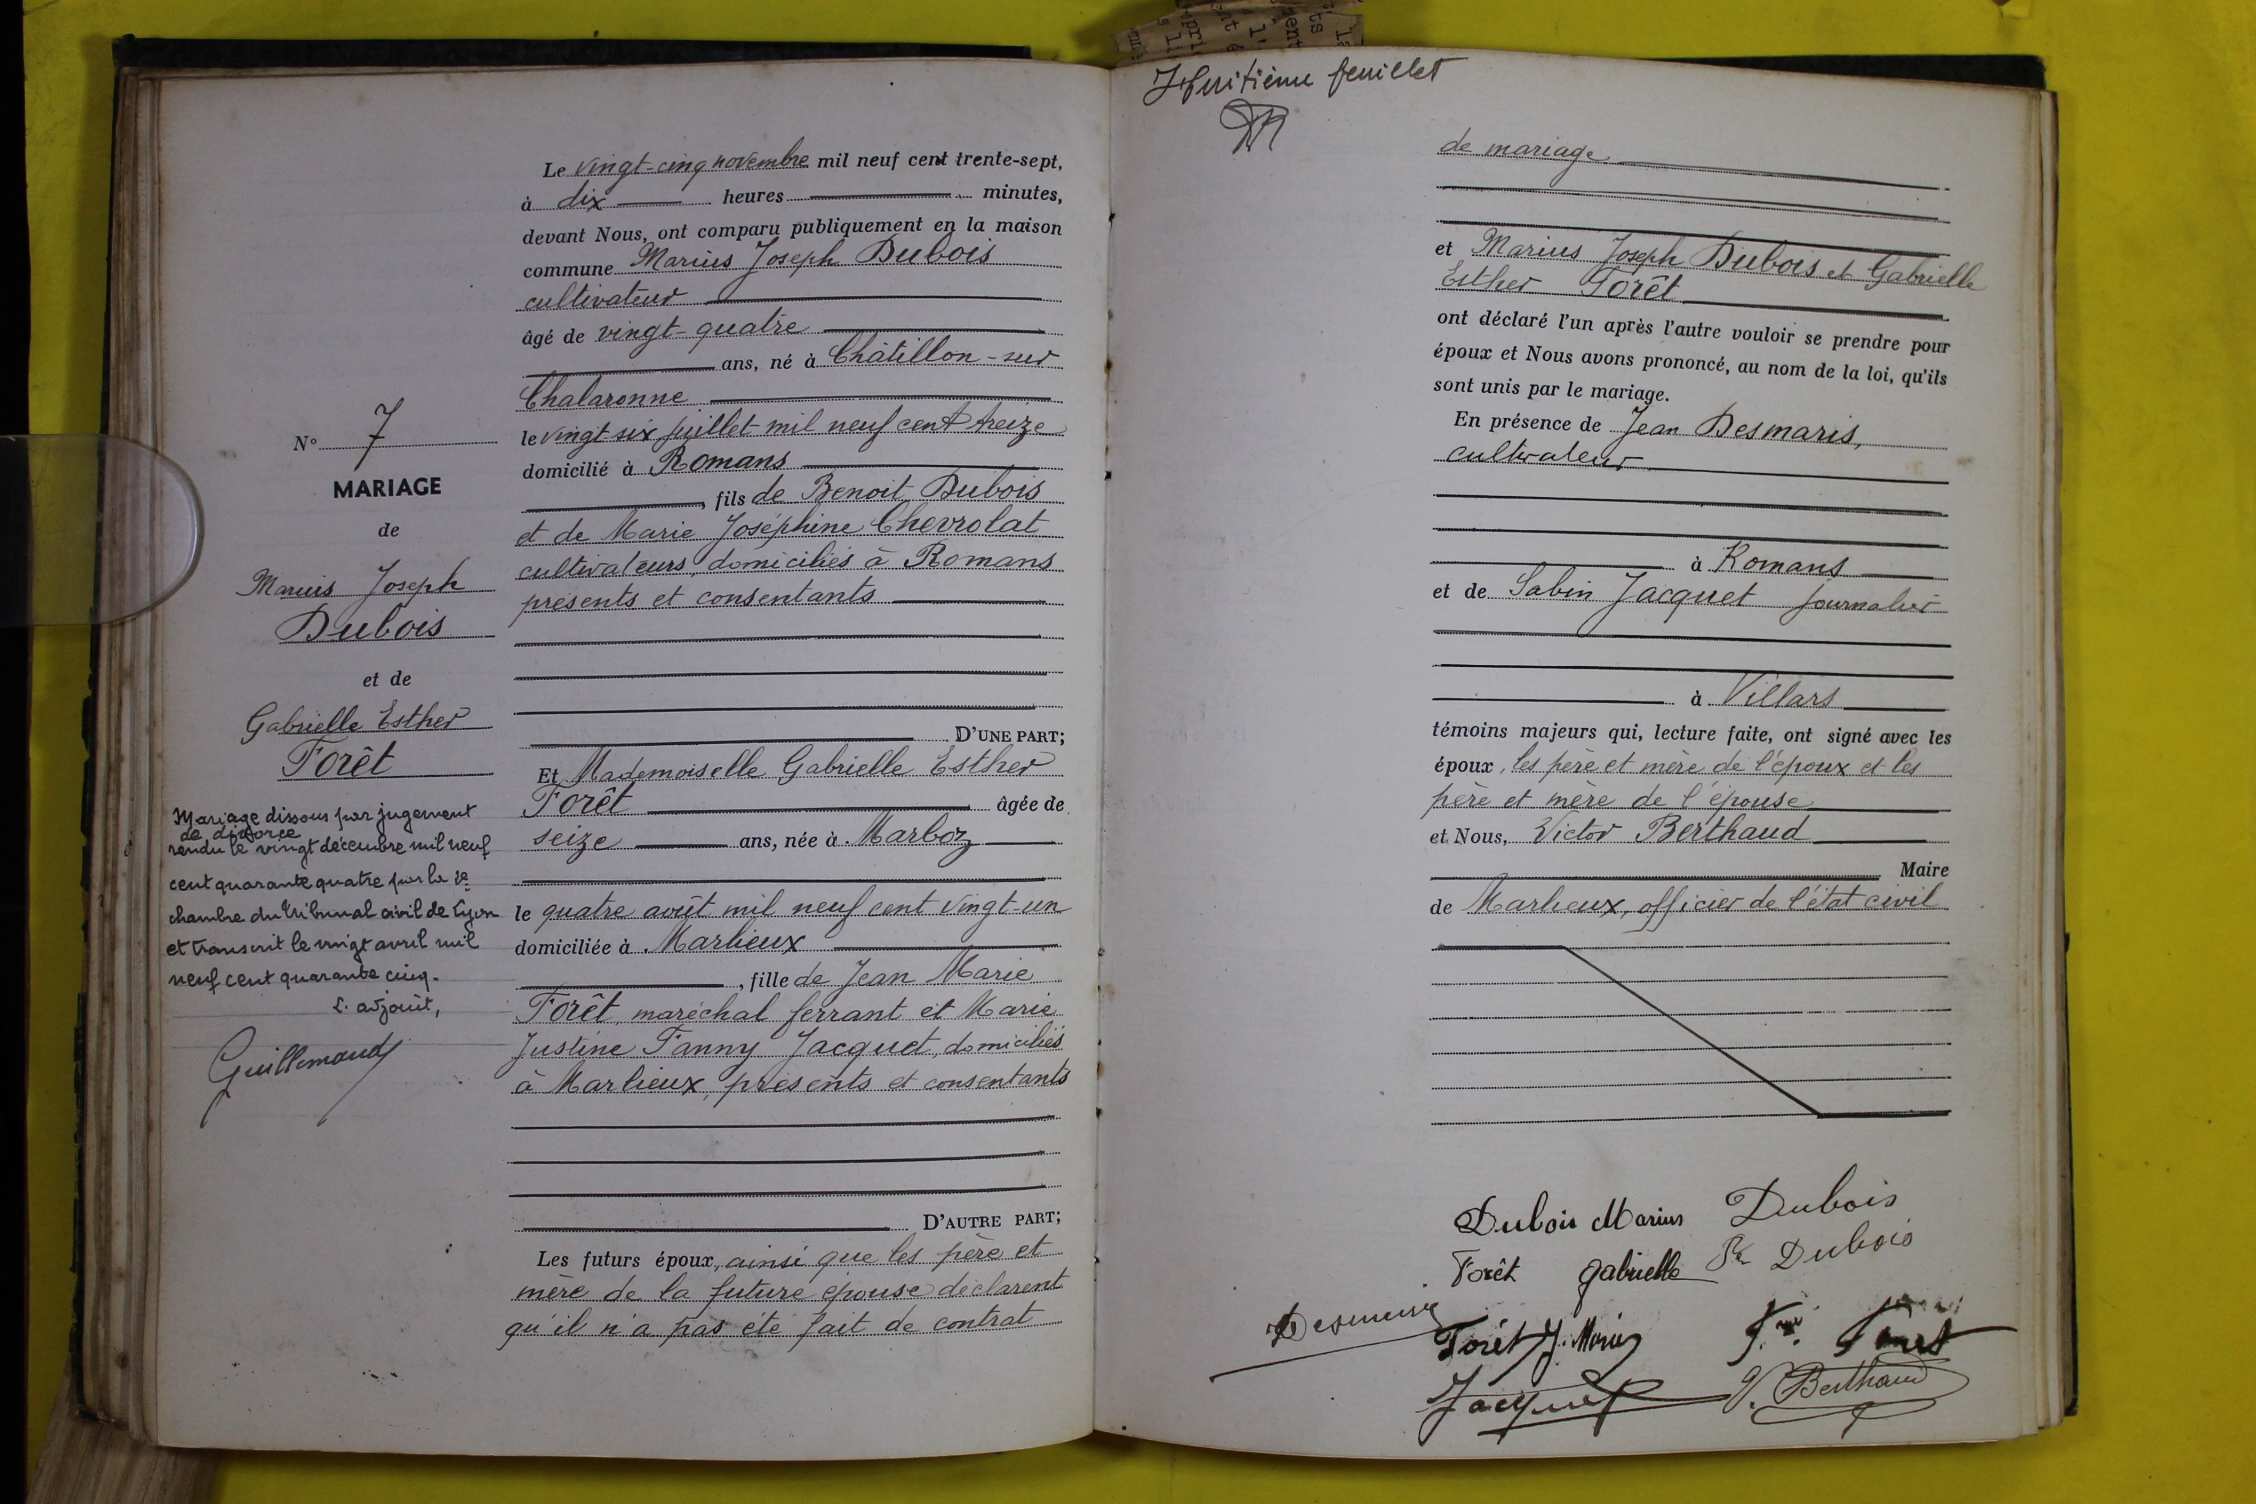 Le vingt-cinq novembre mil neuf cent trente-sept,
à dix heures minutes,
devant Nous, ont comparu publiquement en la maison
commune Marius Joseph Dubois
cultivateur
âgé de vingt-quatre
ans, né à Châtillon-sur
Chalaronne
le vingt-six juillet mil neuf cent treize
domicilié à Romans
, fils de Benoit Dubois
et de Marie Joséphine Chevrolat
cultivateurs, domiciliés à Romans
présents et consentants
D'UNE PART;
Et Mademoiselle Gabrielle Esther
Forêt âgée de
seize ans, née à Marboz
le quatre août mil neuf cent vingt-un
domiciliée à Marlieux
, fille de Jean Marie
Forêt, maréchal ferrant et Marie
Justine Fanny Jacquet, domiciliés
à Marlieux, présents et consentants
D'AUTRE PART;
Les futurs époux, ainsi que les père et
mère de la future épouse déclarent
qu'il n'a pas été fait de contrat
N° 7
MARIAGE
de
Marius Joseph
Dubois
et de
Gabrielle Esther
Forêt
Mariage dissous par jugement
de divorce
rendu le vingt décembre mil neuf
cent quarante quatre par la 2e
chambre du Tribunal civil de Lyon
et transcrit le vingt avril mil
neuf cent quarante cinq.
L'adjoint,
Guillemaud
Huitième feuillet
de mariage
et Marius Joseph Dubois et Gabrielle
Esther Forêt
ont déclaré l'un après l'autre vouloir se prendre pour
époux et Nous avons prononcé, au nom de la loi, qu'ils
sont unis par le mariage.
En présence de Jean Desmaris,
cultivateur
à Romans
et de Sabin Jacquet journalier
à Villars
témoins majeurs qui, lecture faite, ont signé avec les
époux, les père et mère de l'époux et les
père et mère de l'épouse
et Nous, Victor Berthaud
Maire
de Marlieux, officier de l'état civil
Dubois Marius Dubois
Forêt Gabrielle Dubois
Forêt J. Marie Forêt
Jacquet V. Berthaud